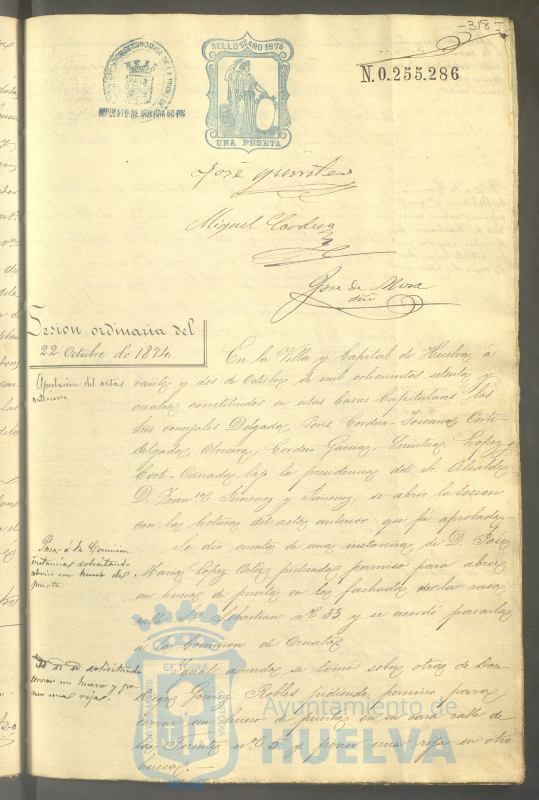 -318-
SELLO 11º AÑO 1874
UNA PESETA
IMPUESTO DE GUERRA 50 Cs
N. 0.255.286
José Quintero
Miguel Cordero
José de Mora
Sesion ordinaria del
22 Octubre de 1874.
En la Villa y Capital de Huelva á
Aprobacion del acta
anterior
veinte y dos de Octubre de mil ochocientos setenta y
cuatro constituidos en estas Casas Capitulares los
Sres concejales Delgado, Pons, Cordero, Toscano, Corte
Delgado, Oliveira, Cordero Garcia, Quintero, Lopez y
Corte - Cañada, bajo la presidencia del Sr. Alcalde
D. Franco Jimenez y Jimenez, se abrio la Sesion
con la lectura del acta anterior que fué aprobada.
Pasa á la Comision
instancia solicitando
abrir un hueco de
puerta
Se dió cuenta de una instancia de D. José
Maria Lopez Ortiz pidiendo permiso para abrir
un hueco de puerta en la fachada de la casa
calle Sn Sebastian nº 33 y se acordó pasarla
á la Comision de Ornato.
Id id id solicitando
cerrar un hueco y po
ner una reja.
Igual acuerdo se tomó sobre otra de Don
Diego Gomez Robles pidiendo permiso para
cerrar un hueco de puerta en su casa calle de
la Fuente nº 2 y poner una reja en otro
hueco.
Ayuntamiento de
HUELVA